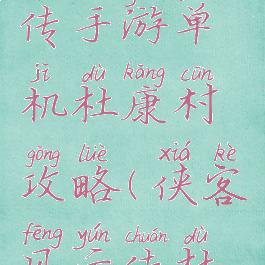 传手游单
jī dù kāng cūn
机杜康村
gōng lüè xiá kè
攻略(侠客
fēng yún chuán dù
风云传杜